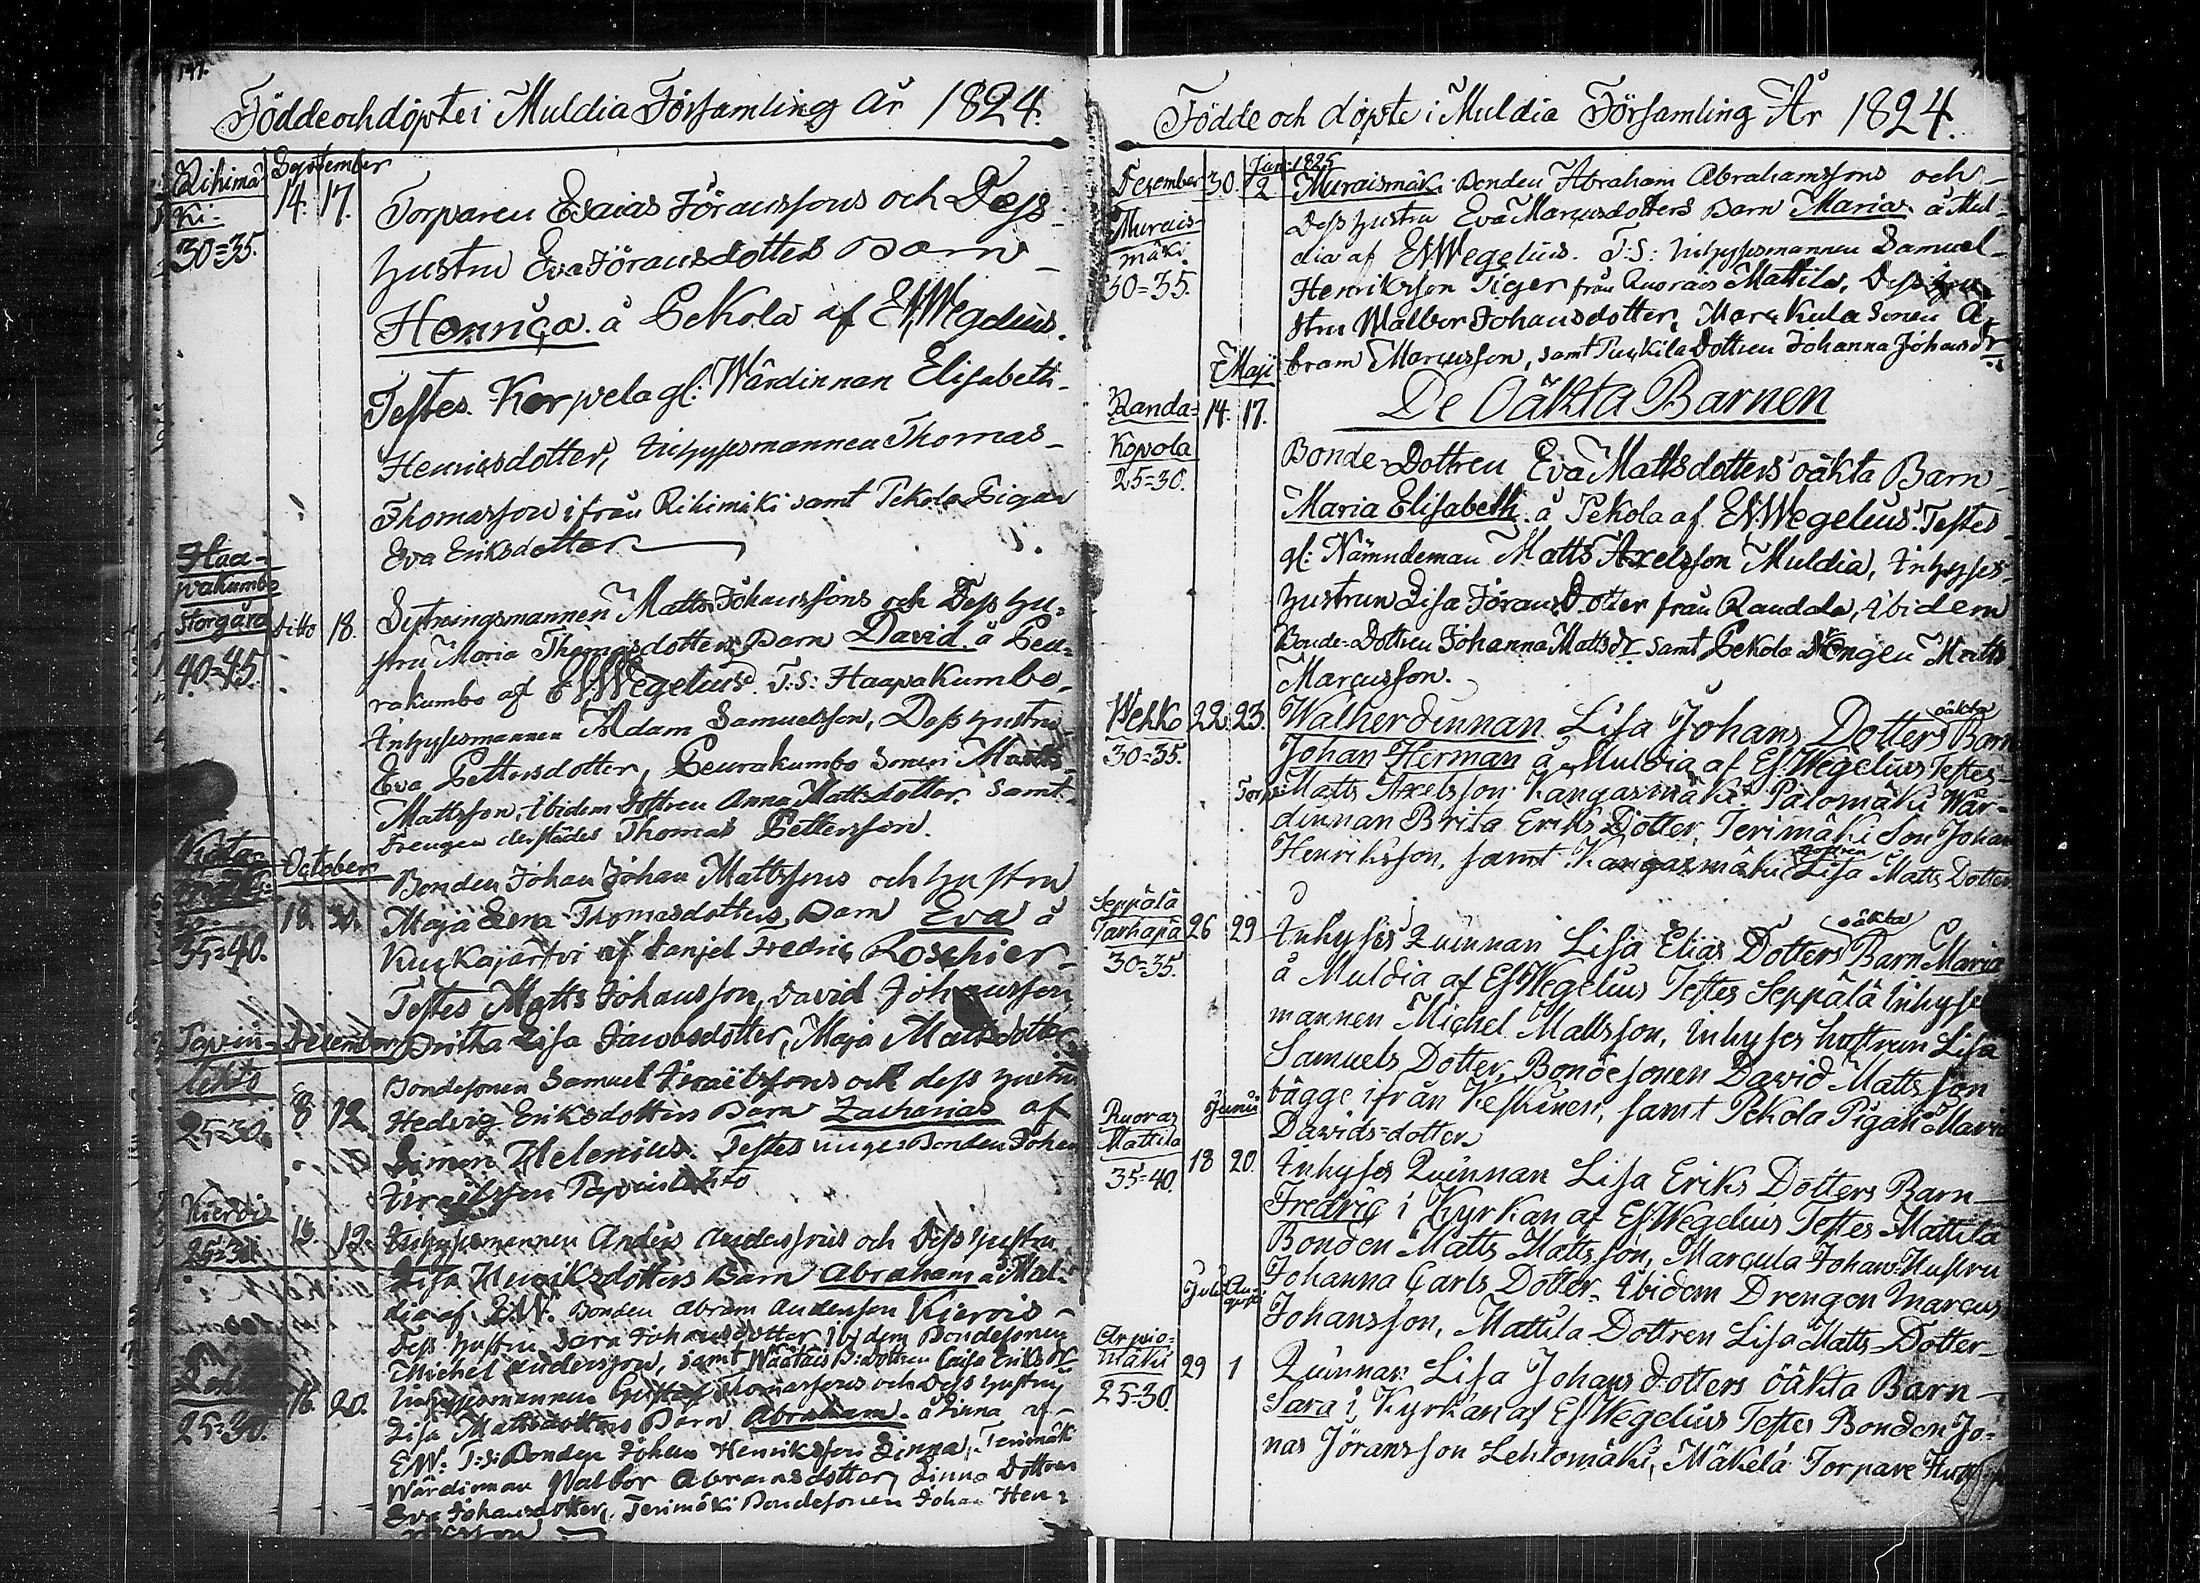 141.
Föddeochdöpte i Muldia Församling År 1824.
September
Rihimä
ki
30=35.
14. 17.
Torparen Esaias Jöranssons och Dess
hustru Eva Joransdotters Barn
Henrica å Pekola af EWWegelius.
Testes Korpela gl: Wärdinnan Elisabeth
Henricsdotter, Inhysesmannen Thomas
Thomasson ifrån Rihimäki samt Pekola Pigan
Eva Eriksdotter
Haa-
pakumbo
Storgård
40=45.
ditto 18.
Sytningsmannen Matts Johanssons och Dess hu-
stru Maria Thomasdotters Barn David å Peu-
rakumbo af EWWegelius. T:S: Haapakumbo
Inhysesmannen Adam Samuelsson, Dess hustru
Eva Pettersdotter, Peurakumbo Sonen Matts
Mattsson, Ibidem Dottren Anna Mattsdotter, Samt
Drengen derstädes Thomas Pettersson.
October
35=40.
18. 30.
Bonden Johan Johan Mattssons och hustru
Maja Lena Thomasdotters Barn Eva å
Kuckajärwi af Danjel Fredric Roschier
Testes Matts Johansson, David Johansson
Britha Lisa Jacobsdotter, Maja Mattsdotter
Tapiin-
lehto
25=30.
December
8 12.
Bondesonen Samuel Israëlssons och dess hustru
Hedvig Eriksdotters Barn Zacharias af
Simon Helenius. Testes unge Bonden Johan
Israëlsson Tapiinlehto
Kierois
25=30.
16. 19.
Inhysesmannen Anders Anderssons och Dess hustru
Lisa Henriksdotters Barn Abraham å Mul-
dia af E.W: Bonden Abram Andersson Kierois
Dess hustru Sara Johansdotter, ibidem Bondesonen
Michel Andersson, samt B:dottren Caisa Eriks dr
25=30.
16. 20.
Inhysesmannen Gustaf Thomassons och Dess hustru
Lisa Mattsdotters Barn Abraham å Linna af
EW: T:S: Bonden Johan Henriksson Linna, Terimäki
Wärdinnan Walbor Abramsdotter, Linna Dottren
Eva Johansdotter, Terimäki Bondesonen Johan Hen-
riksson
Födde och döpte i Muldia Församling År 1824.
December 30. Jan: 1825 2
Murais-
mäki.
30=35.
Muraismäki Bonden Abraham Abrahamssons och
Dess hustru Eva Marcusdotters Barn Maria å Mul-
dia af EWWegelius. T:S: Inhysesmannen Samuel
Henriksson Tiger från Ruoras Mattila, Dess hu-
stru Walbor Johansdotter, Marckula Sonen A-
bram Marcusson, samt Puckila Dottren Johanna Johansdr
De Oäkta Barnen
Maji
Randa-
Kopola
25=30.
14. 17.
Bonde-Dottren Eva Mattsdotters oäkta Barn
Maria Elisabeth å Pekola af EWWegelius. Testes
gl: Nämndeman Matts Axelsson Muldia, Inhyses
hustrun Lisa Jörans Dotter från Randala, Ibidem
Bonde-Dottren Johanna Mattsdr samt Pekola Drengen Matts
Marcusson.
Wehko
30=35.
22. 23.
Walherdinnan Lisa Johans Dotters oäkta Barn
Johan Herman å Muldia af EWWegelius Testes
Torp: Matts Axelsson Kangasmäki Palomäki Wär-
dinnan Brita Eriks Dotter, Terimäki Son Johan
Henriksson, samt Kangasmäki dottren Lisa Matts Dotter
Seppälä
Tarhapä
30=35.
26 29
Inhyses Quinnan Lisa Elias Dotters oäkta Barn Maria
å Muldia af EWWegelius Testes Seppälä Inhyses
mannen Michel Mattsson, Inhyses hustrun Lisa
Samuels Dotter, Bondesonen David Mattsson
bägge ifrån Keskinen, samt Pekola Pigan Maria
Davids=dotter
Junii
Ruoras
Mattila
35=40.
18 20.
Inhyses Quinnan Lisa Eriks Dotters Barn
Fredric i Kyrkan af EWWegelius Testes Mattila
Bonden Matts Mattsson, Marcula Johans Hustru
Johanna Carls Dotter, Ibidem Drengen Marcus
Johansson, Mattila Dottren Lisa Matts=Dotter
Julii Augusti
Arpio-
mäki
25=30.
29 1
Quinnan Lisa Johans Dotters oäkta Barn
Sara i Kyrkan af EWWegelius Testes Bonden Jo-
nas Jöransson Lehtomäki, Mäkelä Torpare